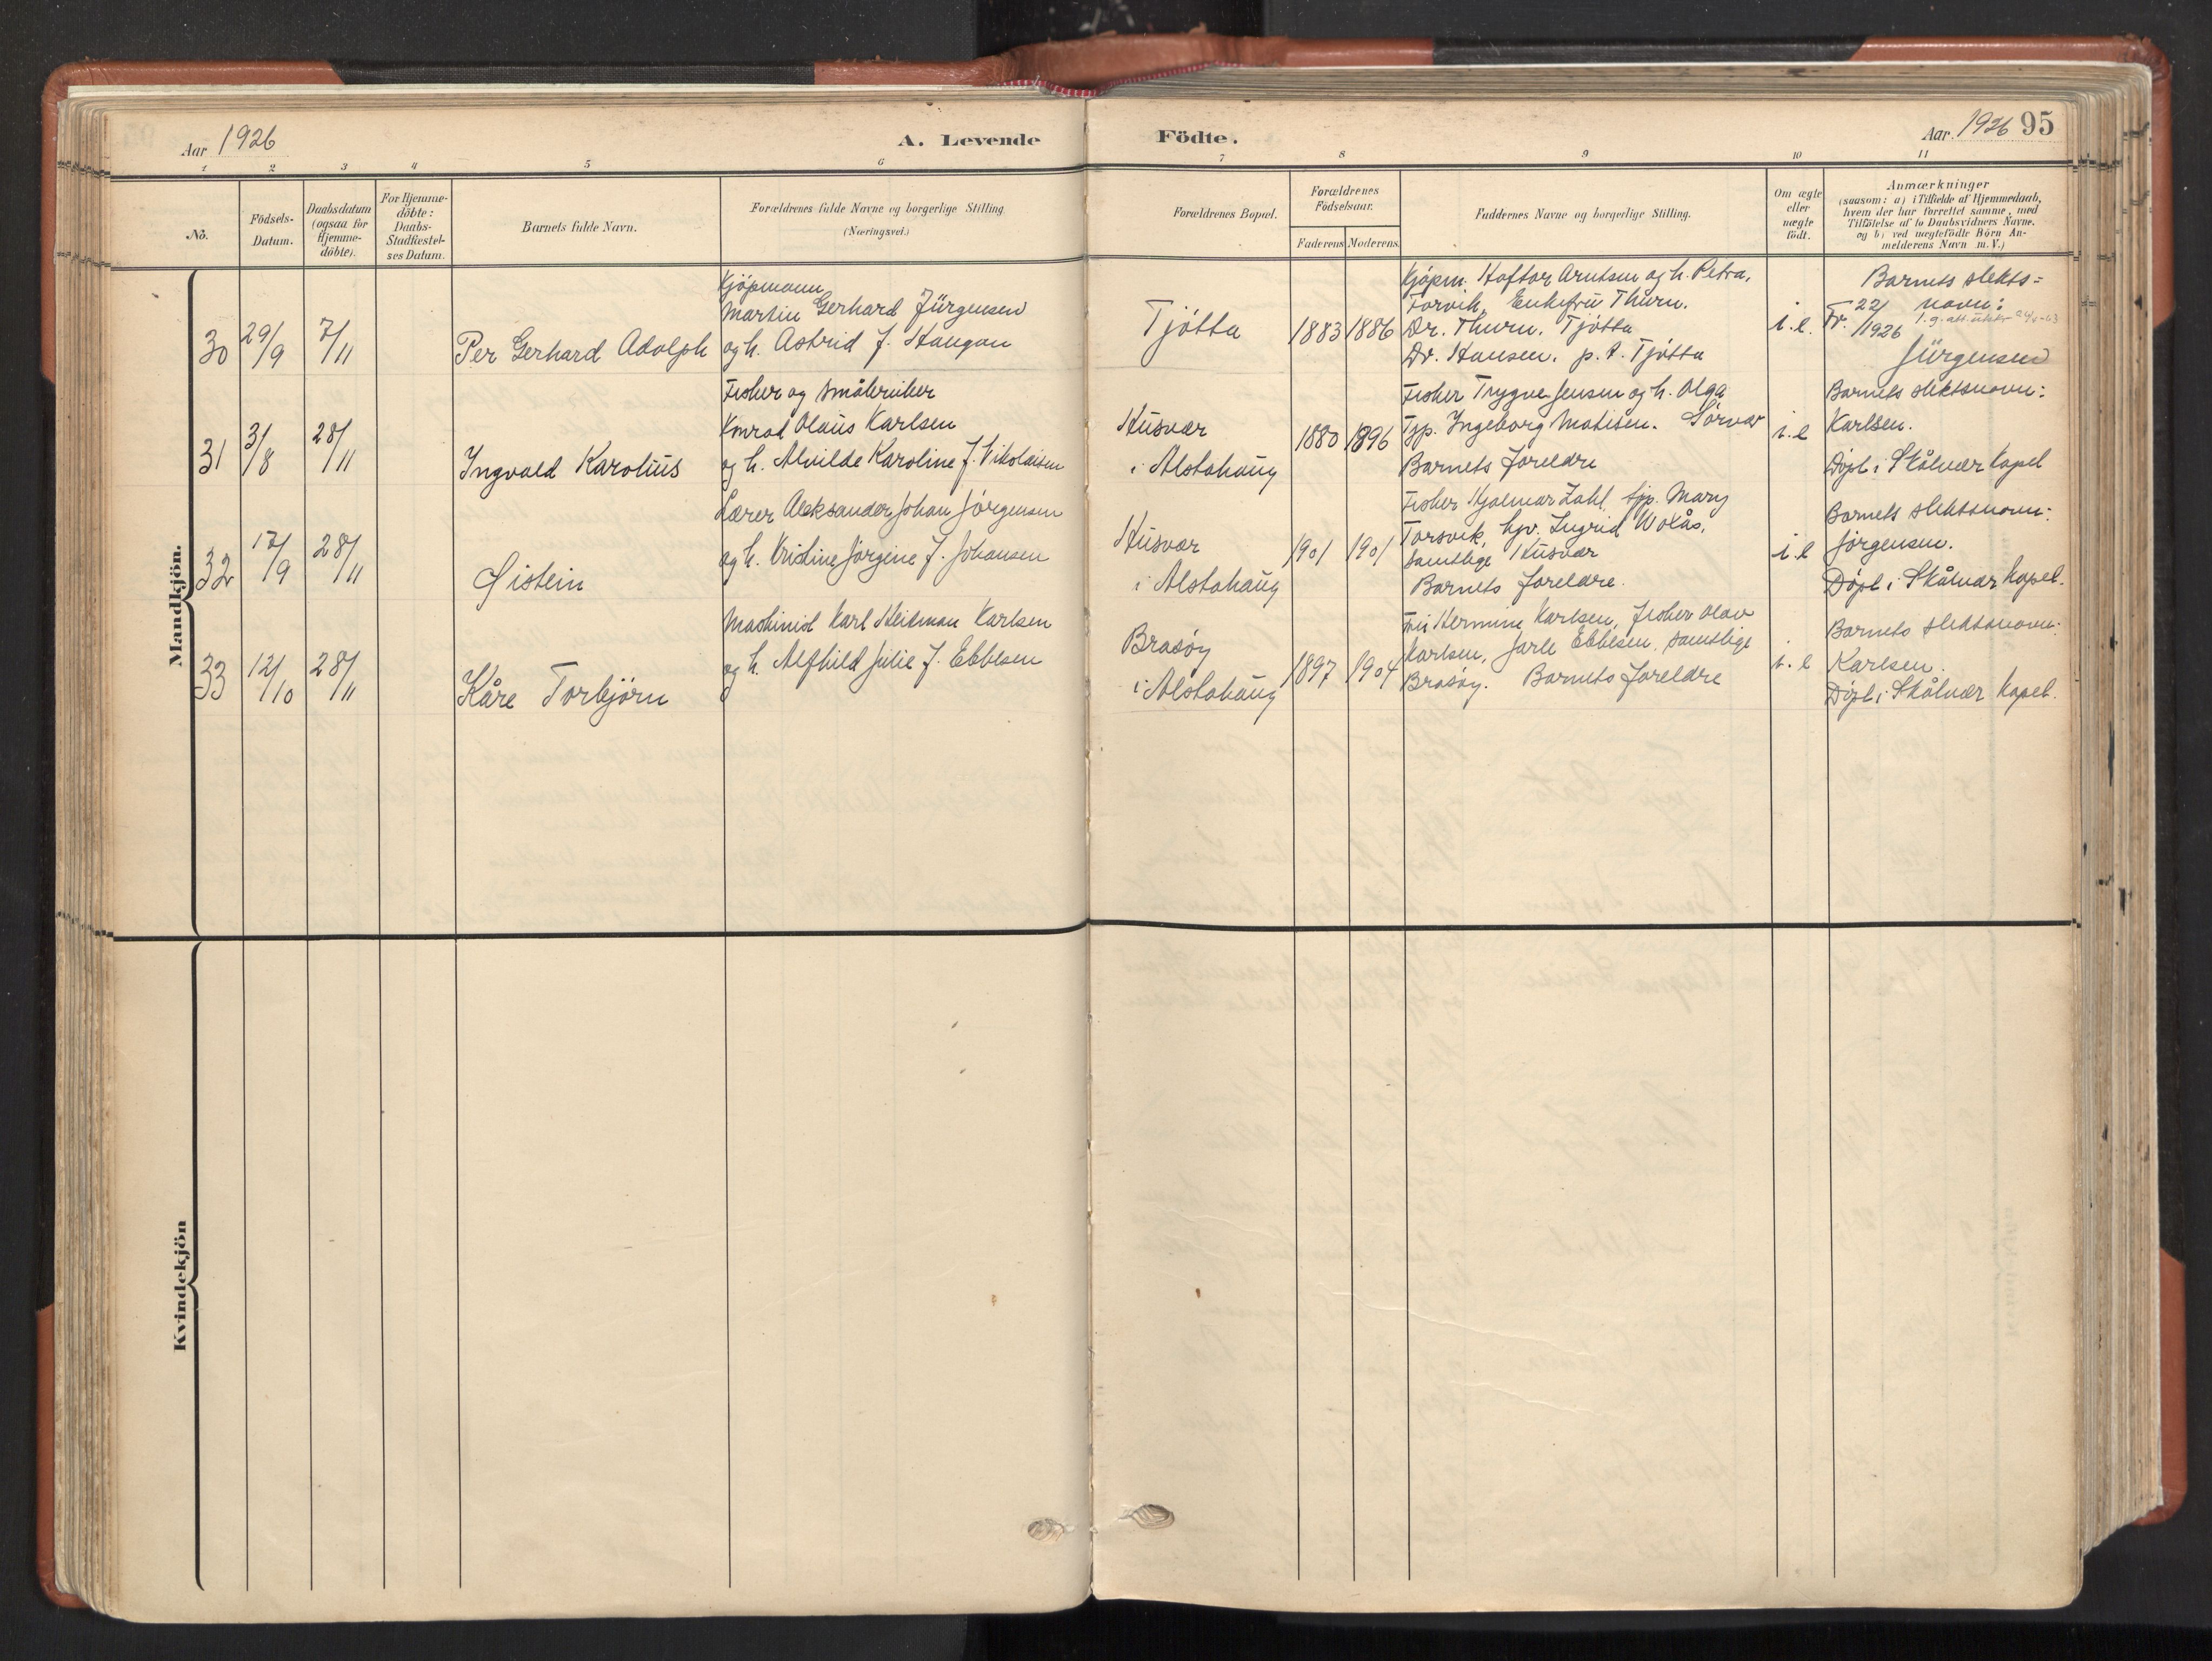 Aar 1926
A. Levende Födte.
Aar. 1926 95
1 2 3 4 5 6 7 8 9 10 11
No.
Födsels-
Datum.
Daabsdatum
(ogsaa for
Hjemme-
döbte).
For Hjemme-
döbte:
Daabs-
Stadfæstel-
ses Datum.
Barnets fulde Navn.
Forældrenes fulde Navne og borgerlige Stilling.
(Næringsvei.)
Forældrenes Bopæl.
Forældrenes
Födselsaar.
Faderens Moderens
Faddernes Navne og borgerlige Stilling.
Om ægte
eller
uægte
födt.
Anmærkninger
(saasom: a) i Tilfælde af Hjemmedaab,
hvem der har forrettet samme, med
Tilföielse af to Daabsvidners Navne.
og b) ved uægtefödte Börn An-
melderens Navn m. V.)
Mandkjön.
30
29/9
7/11
Per Gerhard Adolph
Kjöpmann
Martin Gerhard Jürgensen
og h. Astrid f. Haugan
Tjötta
1883 1886
Kjöpm. Haftor Arntsen og h. Petra,
Forvik, Enkefru Thurn.
Dr. Thurn. Tjötta
Dr. Hansen. p. t. Tjötta
i. e.
Barnets slekts=
Fr. 22/11 1926 navn:
Jürgensen
31
3/8
28/11
Ingvald Karolius
Fisker og småbruker
Konrad Olaus Karlsen
og h. Alvilde Karoline f. Nikolaisen
Husvær
i Alstahaug
1880 1896
Fisker Trygve Jensen og h. Olga
Tjp. Ingeborg Matisen. Sörvær
Barnets foreldre
i. e
Barnets slektsnavn:
Karlsen.
Döpt i Skålvær Kapel
32
17/9
28/11
Øistein
Lærer Aleksander Johan Jörgensen
og h. Kristine Jörgine f. Johansen
Husvær
i Alstahaug
1901 1901
Fisker Hjalmar Zahl, tjp. Mary
Torsvik, hjv. Ingrid Wolås,
samtlige Husvær
Barnets foreldre.
i. e
Barnets slektsnavn:
Jörgensen.
Döpt i Skålvær Kapel.
33
12/10
28/11
Kåre Torbjörn
Maskinist Karl Heitman Karlsen
og h. Alfhild Julie f. Ebbesen
Brasöy
i Alstahaug
1897 1904
Fru Hermine Karlsen, fisker Olav
Karlsen, Jarle Ebbesen, samtlige
Brasöy. Barnets foreldre
i. e
Barnets slektsnavn:
Karlsen.
Döpt i Skålvær Kapel.
Kvindekjön